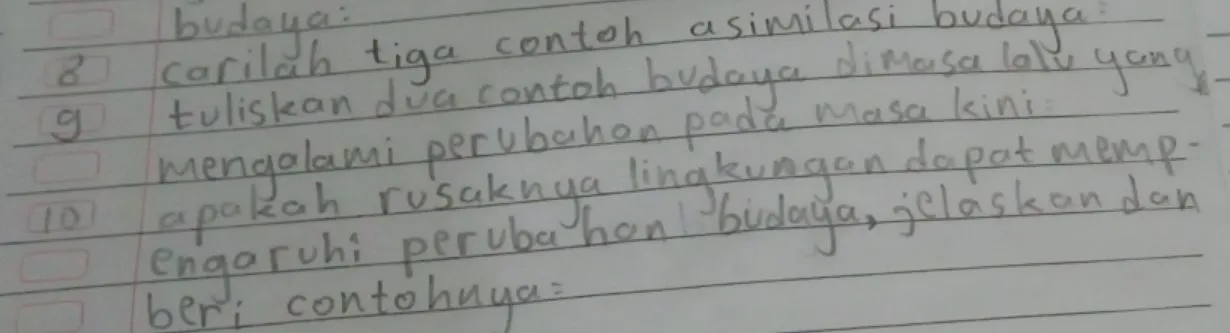 budaya:
8 carilah tiga contoh asimilasi budaya:
9 tuliskan dua contoh budaya dimasa lalu yang
mengalami perubahan pada masa kini:
10 apakah rusaknya lingkungan dapat memp-
engaruhi perubahan budaya, jelaskan dan
beri contohnya: